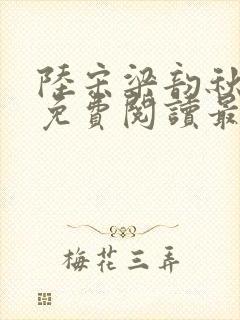 陸宗梁韵秋
免費閱讀最
梅花三弄